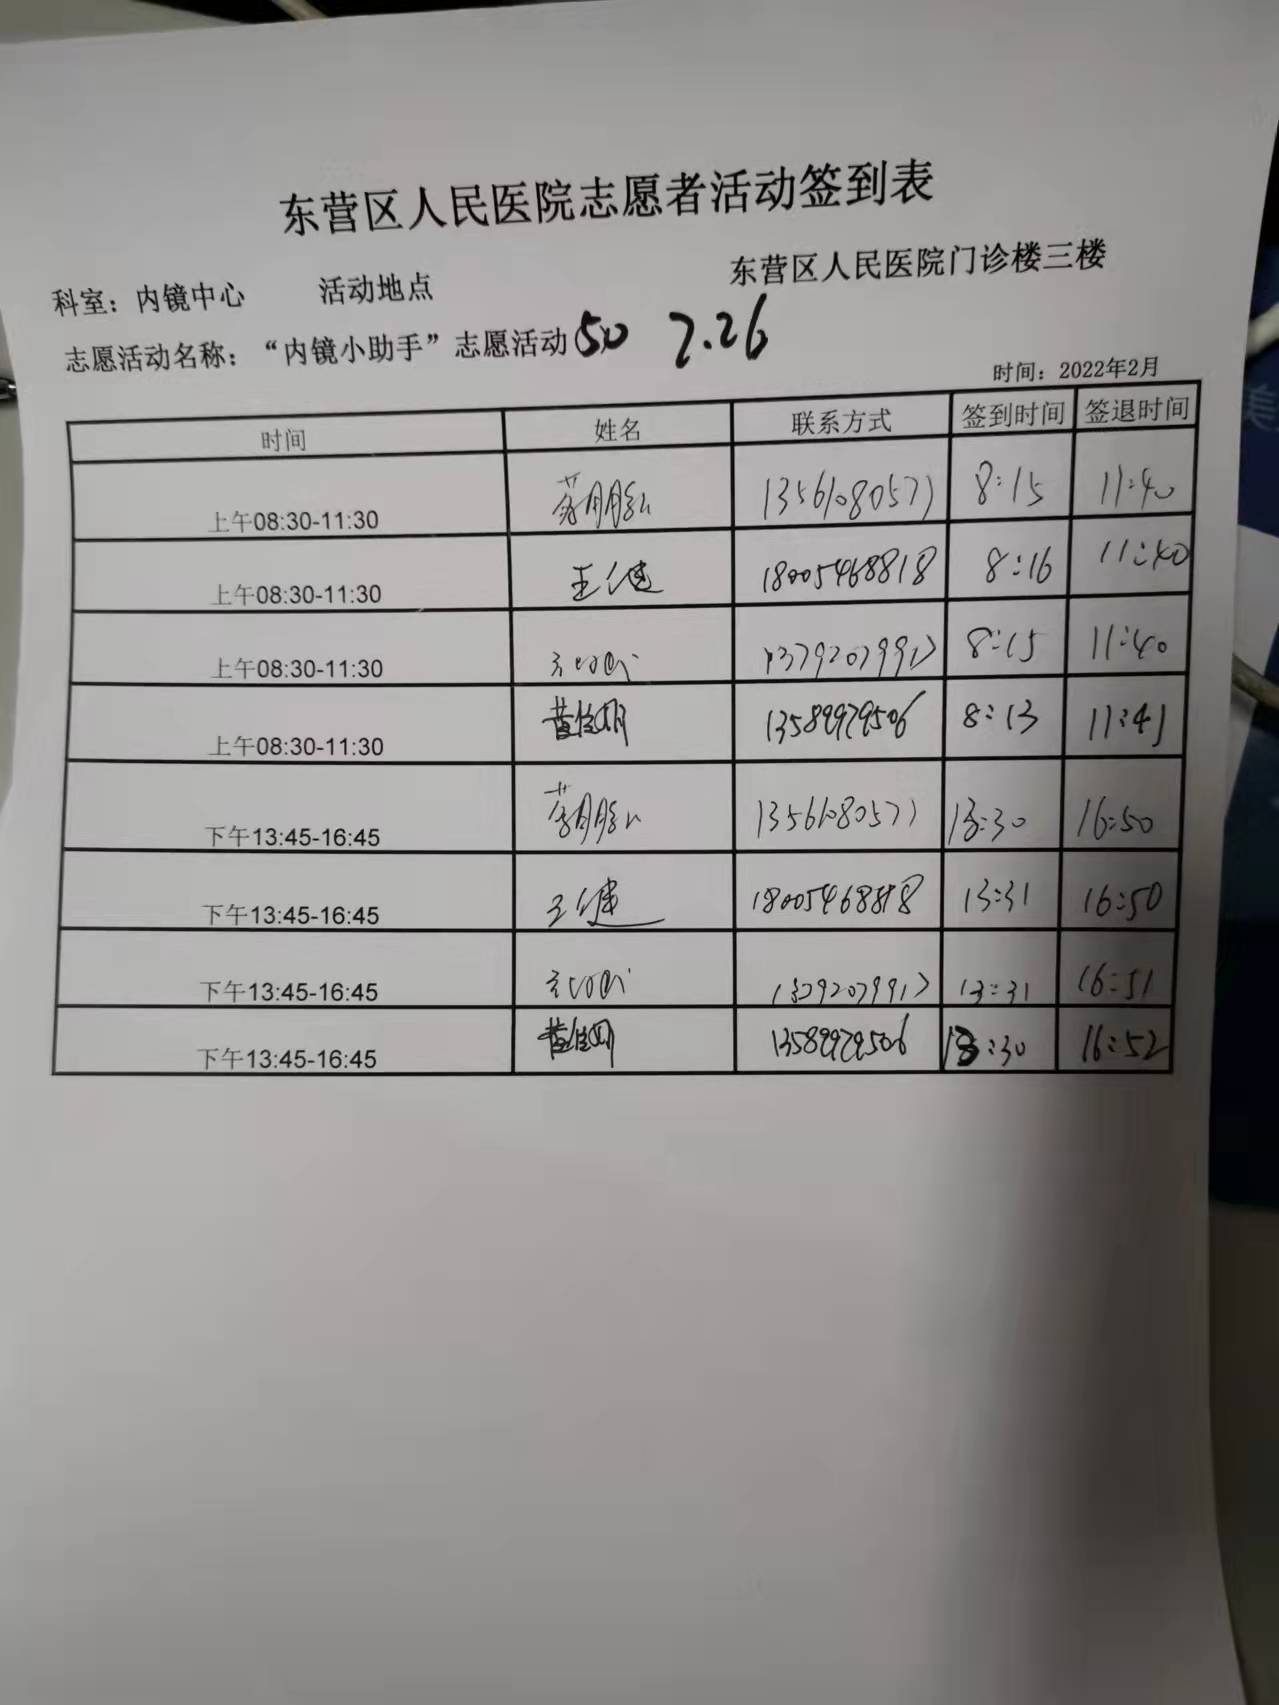 东营区人民医院志愿者活动签到表
科室：内镜中心 活动地点 东营区人民医院门诊楼三楼
志愿活动名称：“内镜小助手”志愿活动(50) 7.26
时间：2022年2月
时间 姓名 联系方式 签到时间 签退时间
上午08:30-11:30 13561080571 8:15 11:40
上午08:30-11:30 王健 18005468818 8:16 11:40
上午08:30-11:30 13792079917 8:15 11:40
上午08:30-11:30 13589979506 8:13 11:41
下午13:45-16:45 13561080571 13:30 16:50
下午13:45-16:45 王健 18005468818 13:31 16:50
下午13:45-16:45 13792079917 13:31 16:51
下午13:45-16:45 13589979506 13:30 16:52